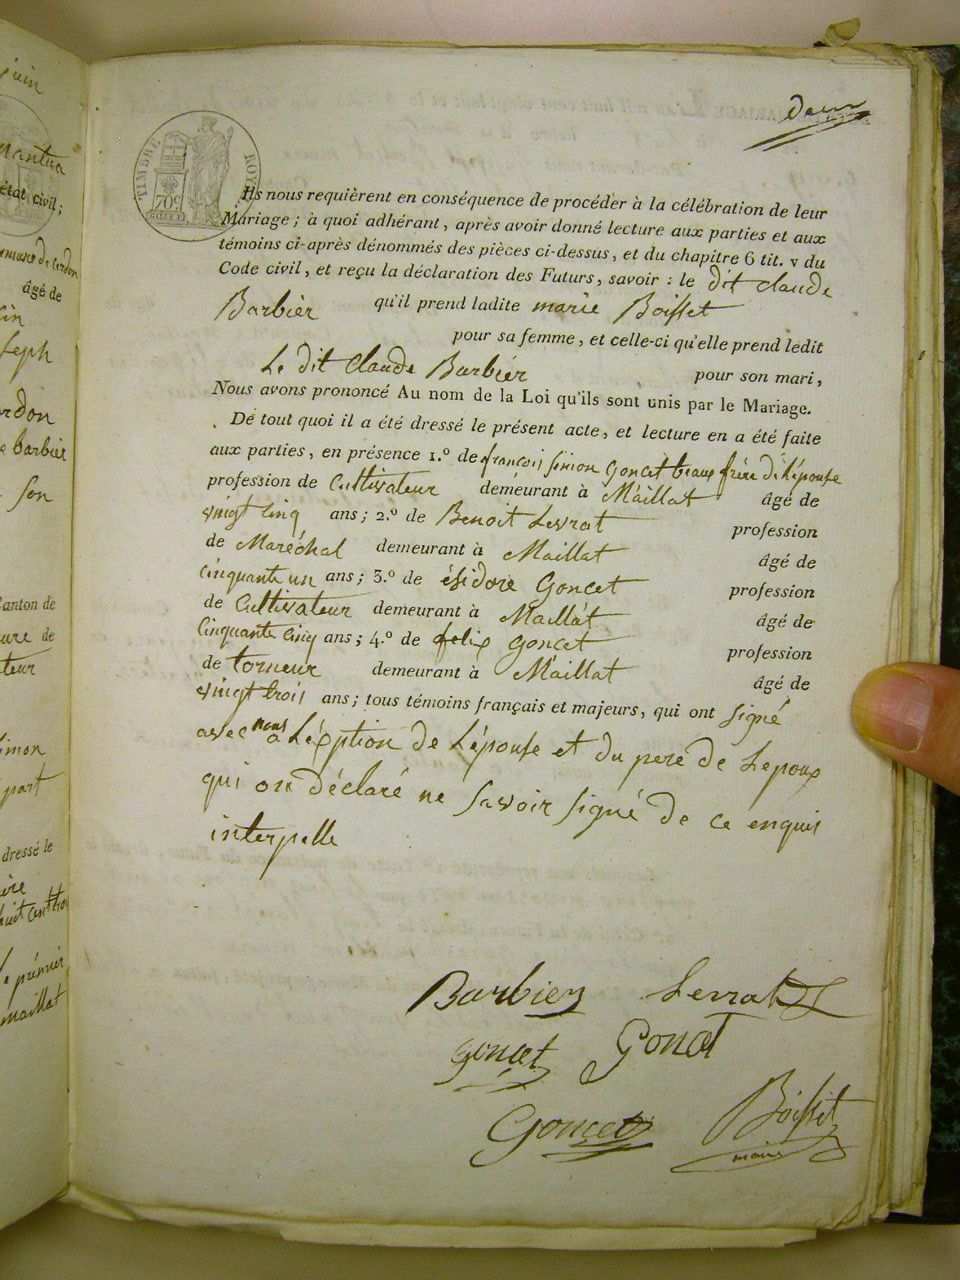 juin
nantua
état civil;
âgé de
rdon
barbier
son
canton de
de
teur
simon
part
dressé le
premier
maillat
deux
TIMBRE ROYAL
70c
Ils nous requièrent en conséquence de procéder à la célébration de leur
Mariage; à quoi adhérant, après avoir donné lecture aux parties et aux
témoins ci-après dénommés des pièces ci-dessus, et du chapitre 6 tit. v du
Code civil, et reçu la déclaration des Futurs, savoir : le dit claude
Barbier qu'il prend ladite marie Boisset
pour sa femme, et celle-ci qu'elle prend ledit
Le dit claude Barbier pour son mari,
Nous avons prononcé Au nom de la Loi qu'ils sont unis par le Mariage.
De tout quoi il a été dressé le présent acte, et lecture en a été faite
aux parties, en présence 1.º de françois simon Goncet beaux frère de L'épouse
profession de Cultivateur demeurant à Maillat âgé de
vingt cinq ans; 2.º de Benoit Levrat profession
de Maréchal demeurant à Maillat âgé de
cinquante un ans; 3.º de ésidore Goncet profession
de Cultivateur demeurant à Maillat âgé de
Cinquante Cinq ans; 4.º de felix Goncet profession
de torneur demeurant à Maillat âgé de
vingt trois ans; tous témoins français et majeurs, qui ont signé
avec nous à L'éxption de L'épouse et du pere de Lepoux
qui on déclaré ne savoir signé de ce enquis
interpelle
Barbier Levrat
goncet Goncet
Goncet Boisset
maire